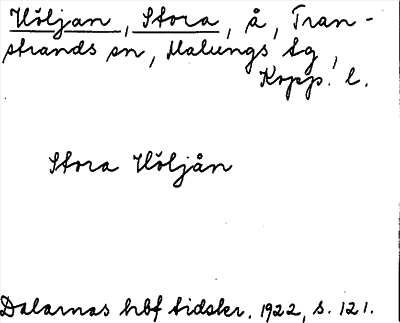 Höljan, Stora, å, Tran-
strands sn, Malungs tg,
Kopp. l.
Stora Höljån
Dalarnas hbf tidskr. 1922, s. 121.